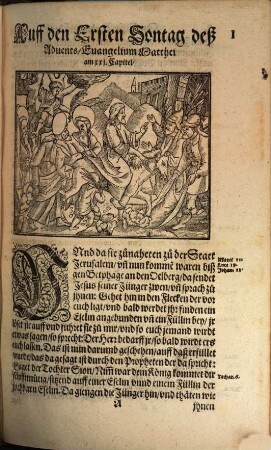 Auff den Ersten Sontag deß
I
Advents/Euangelium Matthei
am xxj. Capitel/
UNd da sie zů naheten zů der Statt
Jerusalem/ vñ nun kommē waren biß
gen Betphage an den Oelberg/da sendet
Jesus seiner Jünger zwen/vñ sprach zů
jhnen: Gehet hin in den Flecken der vor
euch ligt/vnd bald werdet jhr finden ein
Eselin angebunden vñ ein Füllin bey/
löset sie auff vnd führet sie zů mir/vnd so euch jemand wirdt
etwas sagen/so sprecht: Der Herr bedarff jr/so bald wirdt ers
euch lassen. Das ist nun darumb geschehen/auff daß erfüllet
wurd/das da gesagt ist durch den Propheten der da spricht:
Saget der Tochter Sion/Nim̃ war dein König kommet dir
sanfftmütig/sitzend auff einer Eselin vnnd einem Füllin der
jochbaren Eselin. Da giengen die Jünger hin/vnd thäten wie
A
jhnen
Marci 11.
Luce 19.
Johan. 12.
Zachar. 6.